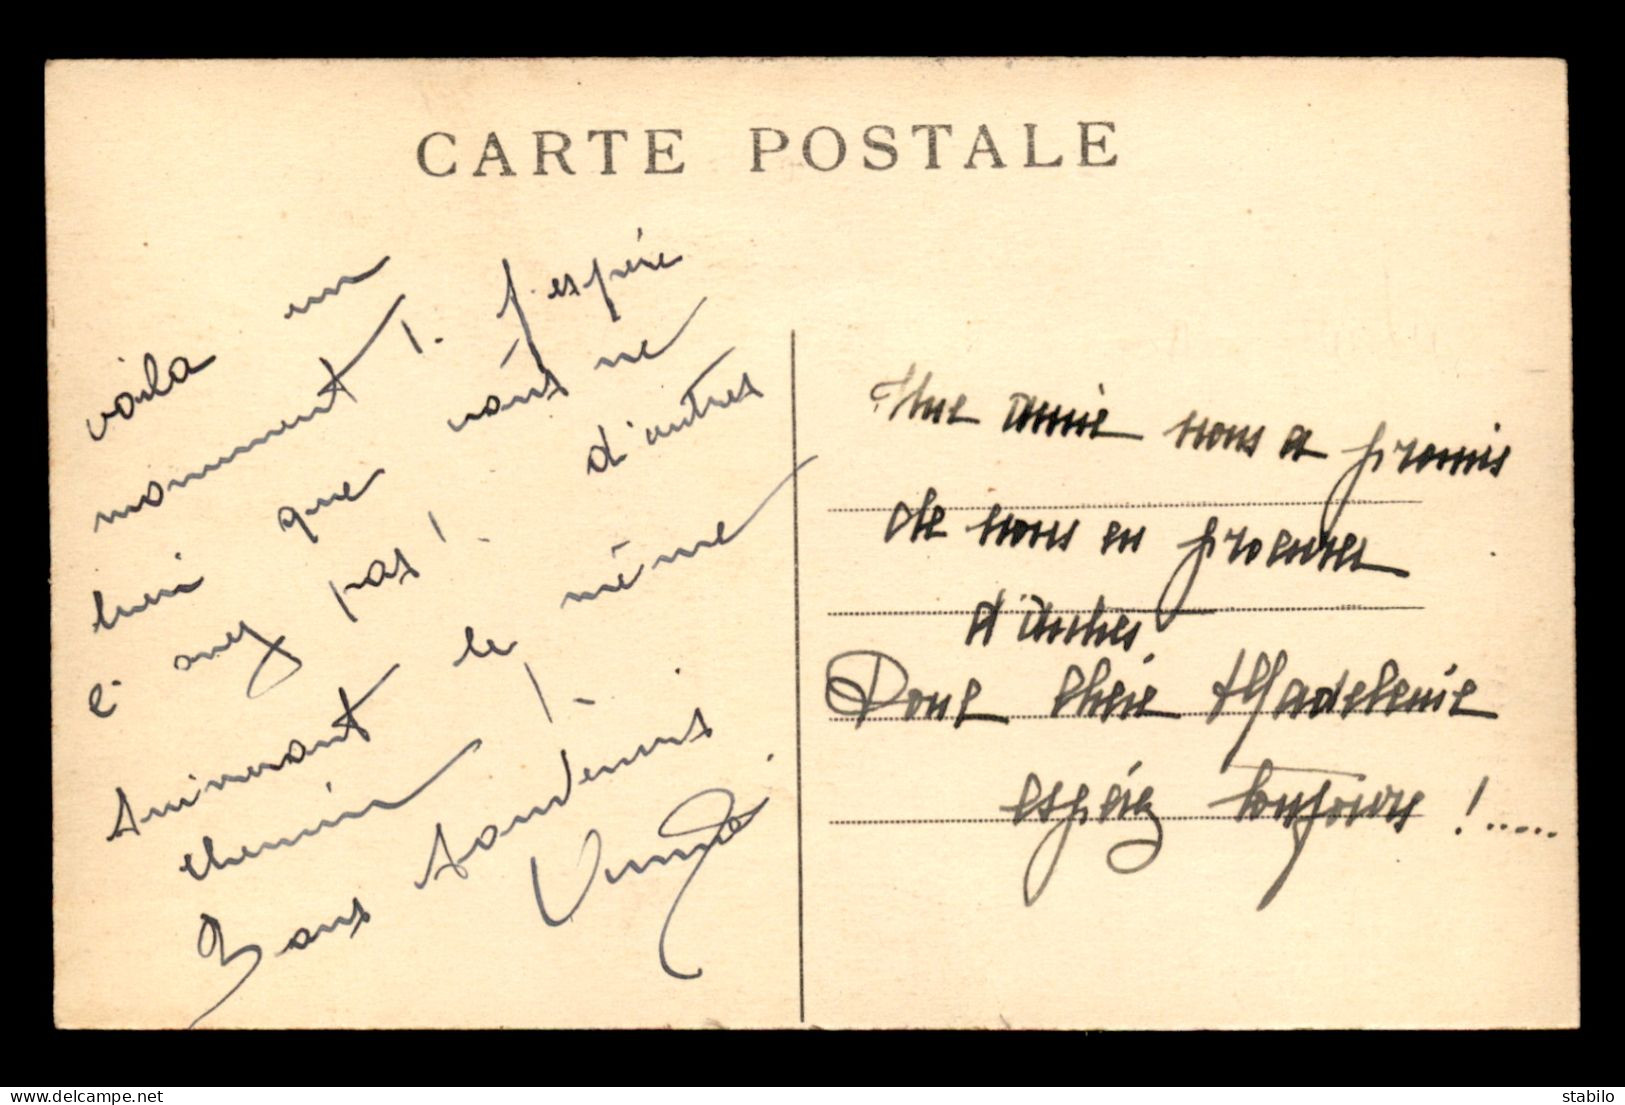 CARTE POSTALE
voila un
monument !. J'espére
bien que vous ne
l'avez pas !. d'autres
suiveront le même
chemin !.
Bons souvenirs
Une amie nous a promis
de nous en procurer
d'autres.
Donc chére Madeleine
espérez toujours !.....
stabilo